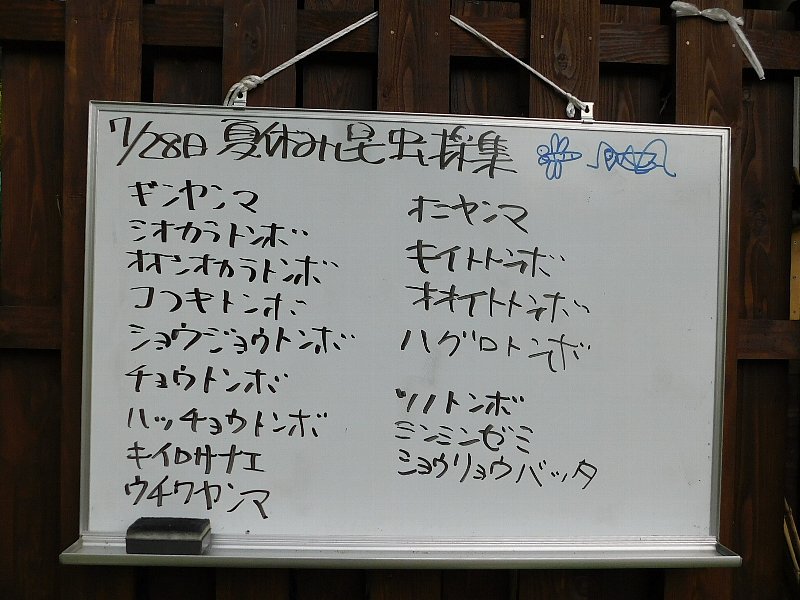 7/28日 夏休み昆虫採集
ギンヤンマ
シオカラトンボ
オオシオカラトンボ
コフキトンボ
ショウジョウトンボ
チョウトンボ
ハッチョウトンボ
キイロサナエ
ウチワヤンマ
オニヤンマ
キイトトンボ
オオイトトンボ
ハグロトンボ
ツノトンボ
ミンミンゼミ
ショウリョウバッタ